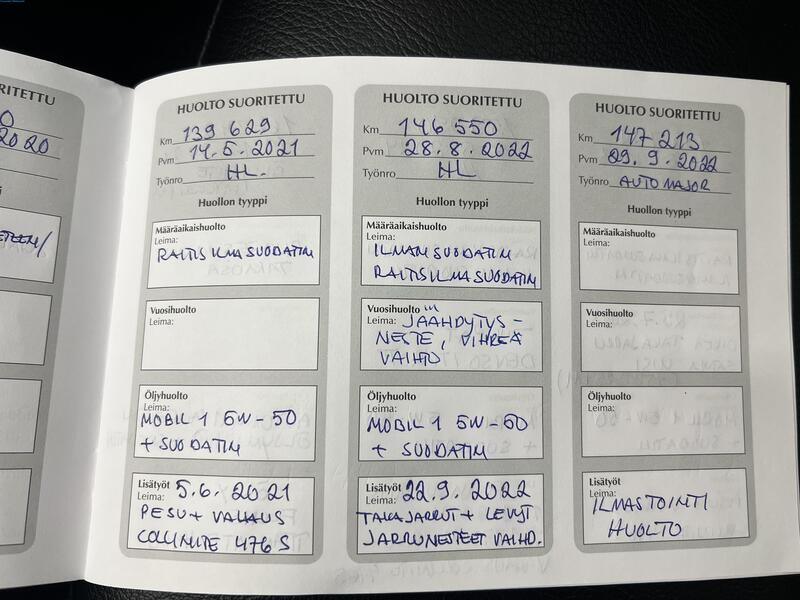 RITETTU
O
2020
i
HUOLTO SUORITETTU
Km 139 629
Pvm 14.5.2021
Työnro HL.
Huollon tyyppi
Määräaikaishuolto
Leima:
RAITIS ILMASUODATIN
Vuosihuolto
Leima:
Öljyhuolto
Leima:
MOBIL 1 5W-50
+ SUODATIN
Lisätyöt 5.6.2021
Leima:
PESU + VAHAUS
COLLINITE 476 S
HUOLTO SUORITETTU
Km 146 550
Pvm 28.8.2022
Työnro HL
Huollon tyyppi
Määräaikaishuolto
Leima: ILMANSUODATIN
RAITIS ILMASUODATIN
Vuosihuolto
Leima: JÄÄHDYTYS-
NESTE, VIHREÄ
VAIHTO
Öljyhuolto
Leima:
MOBIL 1 5W-50
+ SUODATIN
Lisätyöt 22.9.2022
Leima:
TAKAJARRUT + LEVYT
JARRUNESTEET VAIHD.
HUOLTO SUORITETTU
Km 147 213
Pvm 29.9.2022
Työnro AUTOMAJOR
Huollon tyyppi
Määräaikaishuolto
Leima:
Vuosihuolto
Leima:
Öljyhuolto
Leima:
Lisätyöt
Leima:
ILMASTOINTI
HUOLTO